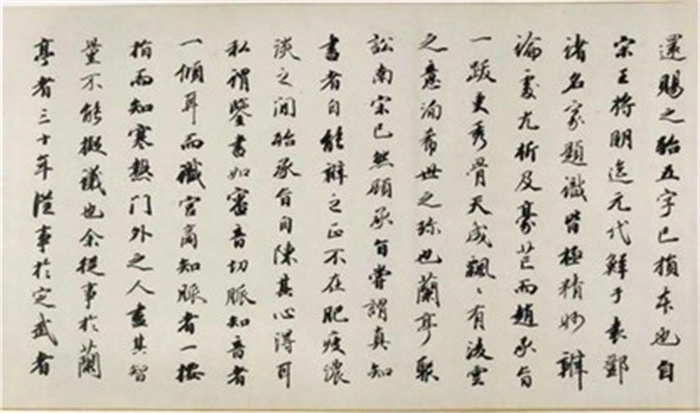 還賜之殆五字已損本也自
宋王將明迄元代鮮于袁鄧
諸名家題識皆極精妙辯
論處尤析及豪芒而趙承旨
一跋更秀骨天成飄〻有凌雲
之意洵希世之珍也蘭亭聚
訟南宋已然顧承旨嘗謂真知
書者自能辯之正不在肥瘦濃
淡之間殆承旨自陳其心得耳
私謂鑒書如審音切脈知音者
一傾耳而識宮商知脈者一按
指而知寒熱門外之人盡其智
量不能擬議也余從事於蘭
亭者三十年從事於定武者